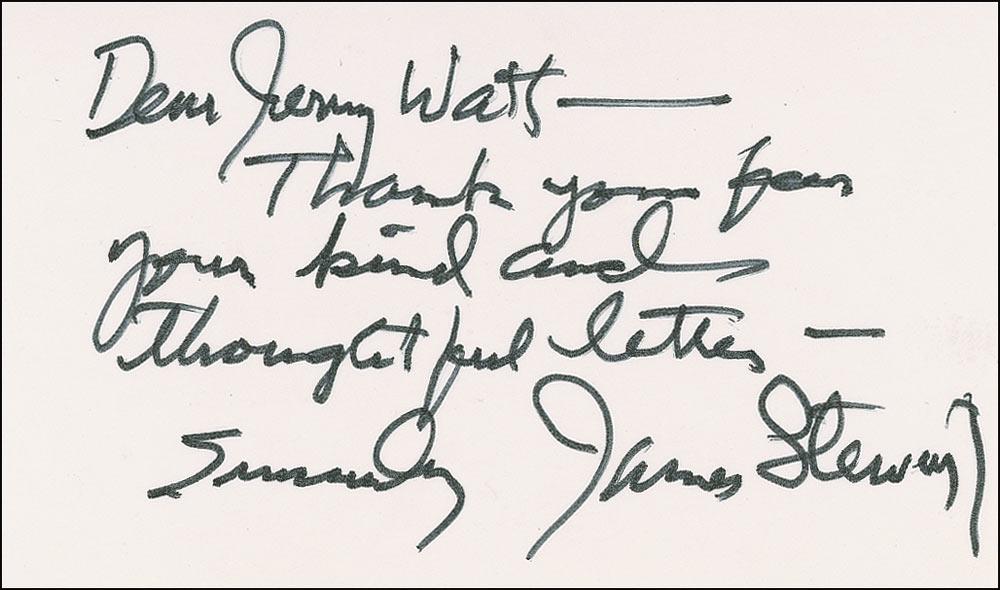 Dear Jerry Watt —
Thank you for
your kind and
thoughtful letter —
Sincerely James Stewart